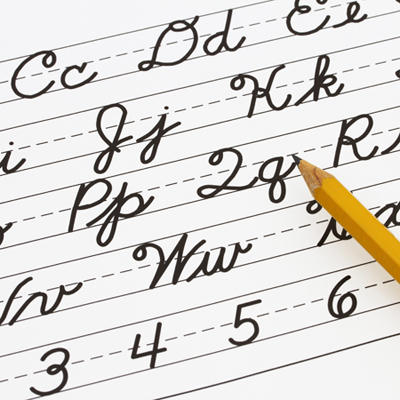 Cc Dd Ee
i Jj Kk
Pp Qq R
v Ww
3 4 5 6